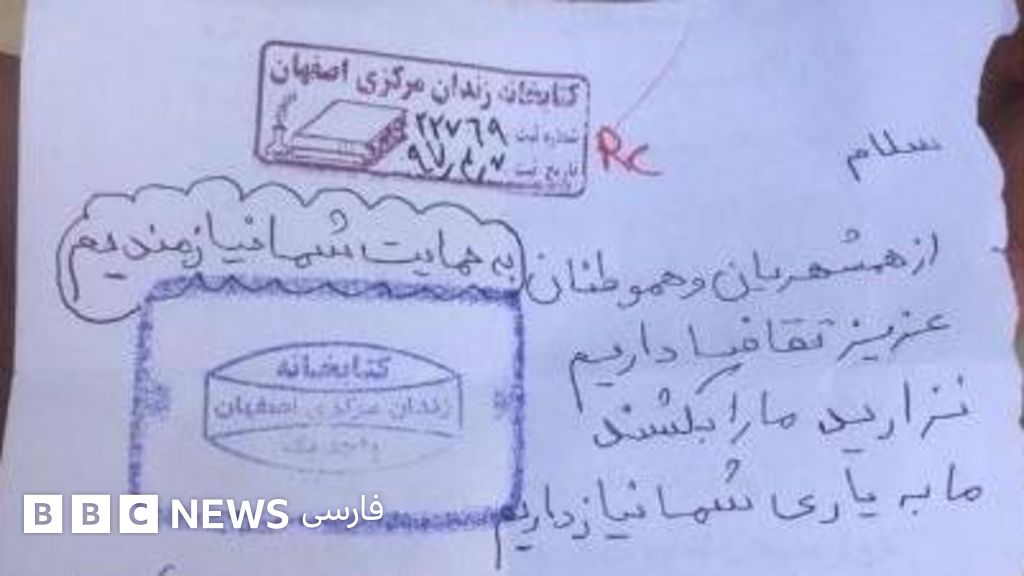 کتابخانه زندان مرکزی اصفهان
شماره ثبت ۲۲۷۶۹
تاریخ ثبت ۹۷٫۴٫۷
Rc
سلام
از همشهریان و هموطنان
به حمایت شما نیازمندیم
عزیز تقاضا داریم
نزارید ما را بکشند
ما به یاری شما نیاز داریم
کتابخانه
زندان مرکزی اصفهان
واحد یک
BBC NEWS فارسی